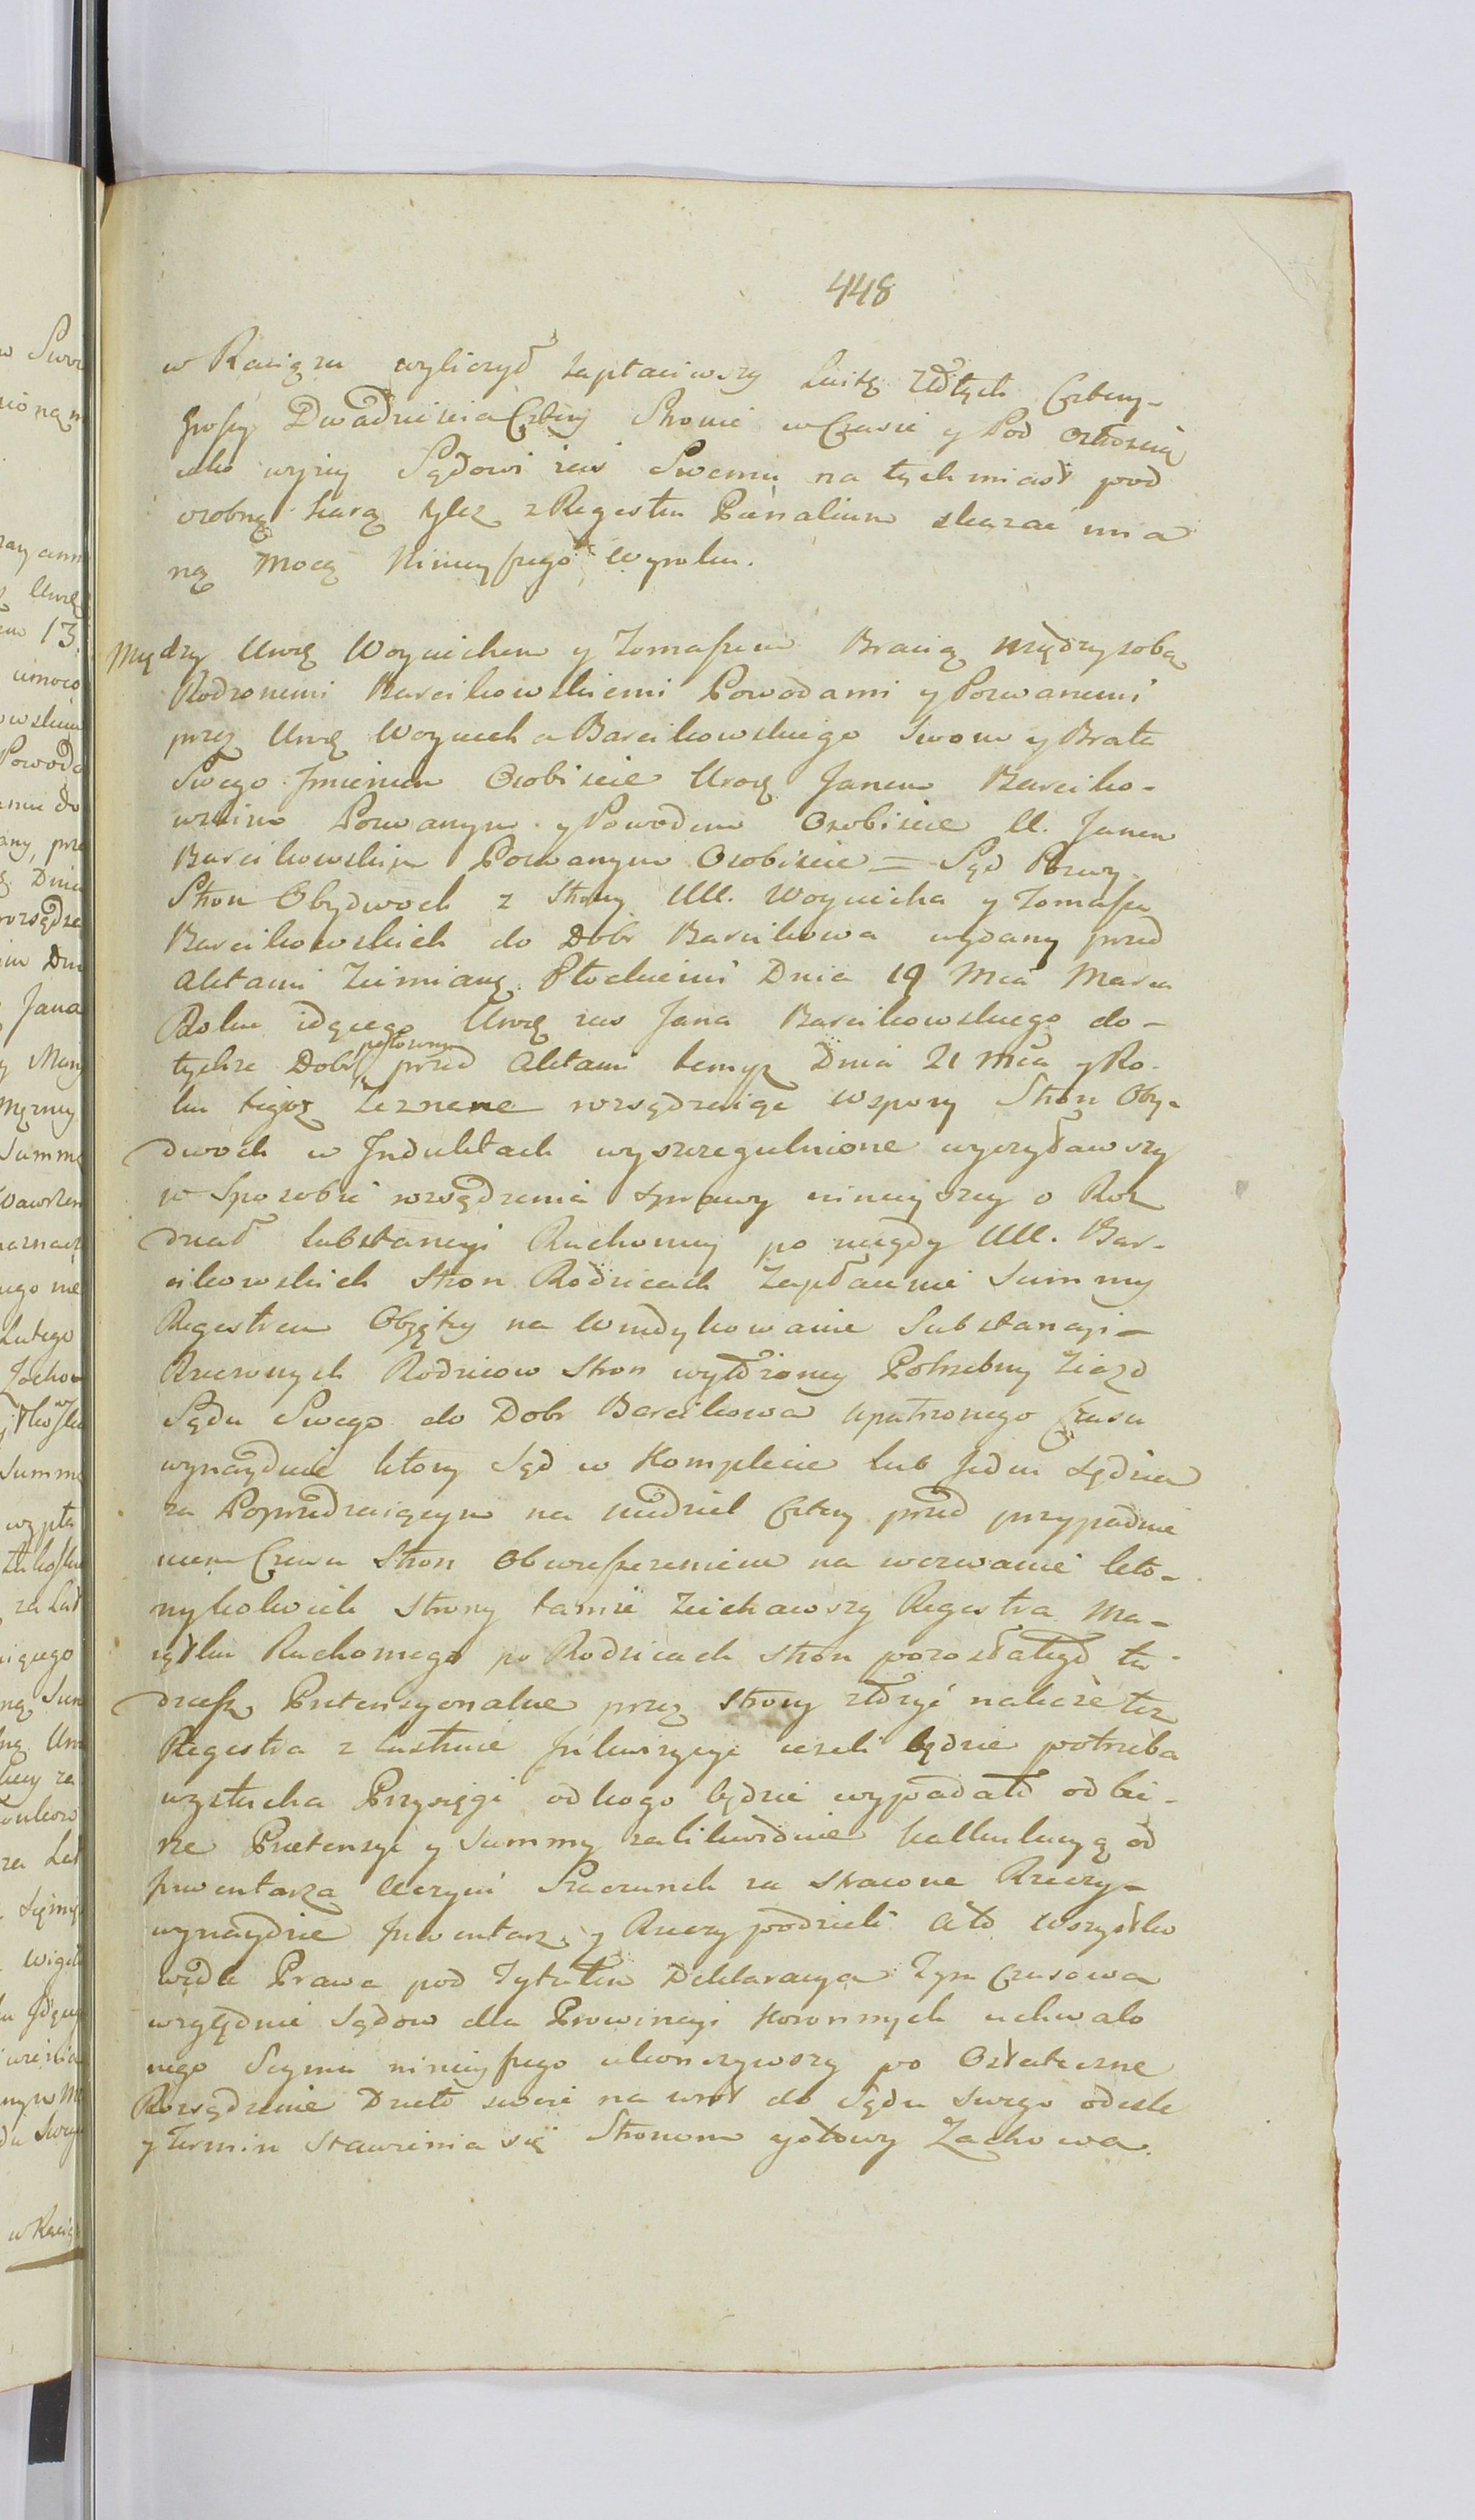 448
w Raciążu wyliczyć zapłaciwszy Luitę Złotych Cztery-
groszy Dwadzieścia Cztery Stronie w Czasie y Pod
wyżey Sądowi zaś Swemu na tychmiast pod
osobną karą tylez z Regestru Pænalium skazać ma
ną mocą Ninieyszego Wyroku.
Między Urod Woyciechem y Tomaszem Bracią między sobą
Rodzonemi Barcikowskiemi Powodami y Pozwanemi
przez Urod Woyciecha Barcikowskiego Swoim y Brata
Swego Jmieniem Osobiscie Urod Janem Barciko-
wskim Pozwanym y Powodem Osobiscie U. Janem
Barcikowskim Pozwanym Osobiscie = Sąd Pozwy
Stron Obydwoch z Strony UU. Woyciecha y Tomasza
Barcikowskich do Dobr Barcikowa wydany przed
Aktami Ziemiańs. Płockiemi Dnia 19 Mca Marca
Roku idącego Urod zas Jana Barcikowskiego do-
tychże Dobr położony przed Aktami temyż Dnia 21 Mca y Ro-
ku tegoż Zeznane rozsądzaiąc Wspory Stron Oby-
dwoch w Induktach wyszczegulnione wyczytawszy
w Sposobie rozsądzenia Sprawy ninieyszey o Roz
dział Substancyi Ruchomey po niegdy UU. Bar-
cikowskich Stron Rodzicach Zapłacenie Summy
Regestrem Objętey na Windykowanie Substancyi-
Rzeczonych Rodzicow Stron wyłożoney Potrzebny Ziazd
Sądu Swego do Dobr Barcikowa upatrzonego Czasu
wynaydzie ktory Sąd w Komplecie lub Jeden Sędzia
za Poprzedzaiącym na niedziel Cztery przed przypadnie
niem Czasu Stron Obwieszczeniem na wezwanie kto-
rykolwiek Strony tamże Ziechawszy Regestra Ma-
iątku Ruchomego po Rodzicach Stron pozostałego tu-
dzież Pretensyonalne przez Strony złożyć nakaże też
Regestra z lustruie Jnkwizycye ieżeli będzie potrzeba
wysłucha Przysięgi od kogo będzie wypadało odbie-
rze Pretensye y Summy zalikwiduie kalkulacyą od
Jnwentarza Uczyni Szacunek za stracone Rzeczy-
wynaydzie Jnwentarz y Rzeczy podzieli A to wszystko
wedle Prawa pod Tytułem Deklaracya Tym Czasowa
względnie Sądow dla Prowincyi Koronnych uchwalo
nego Seymu ninieyszego ukonczywszy po Ostateczne
Rozsądzenie Dzieło swoie na wrot do Sądu Swego odesle
y Termin Stawienia się Stronom gotowy Zachowa.